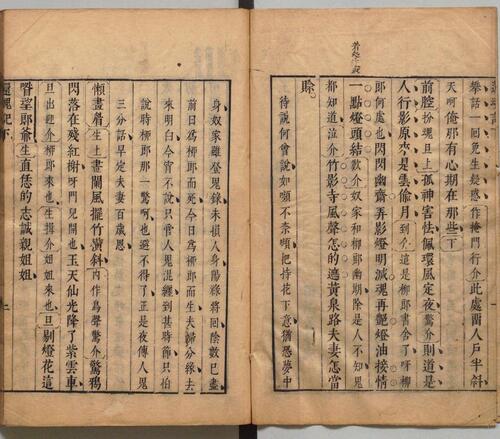 攀話一回免生疑惑作掩門行介此處留人戶半斜
天呵俺那有心期在那些下
前腔扮魂旦上孤神害怯佩環風定夜驚介則道是
人行影原來是雲偷月到介這是柳郎書舍了呀柳
郎何處也閃閃幽齋弄影燈明滅魂再艷燈油接情
一點燈頭結歎介奴家和柳郎幽期除是人不知鬼
都知道泣介竹影寺風聲怎的遮黃泉路夫妻怎當
賒
待說何曾說如嚬不柰嚬把持花下意猶恐夢中
身奴家雖登鬼錄未損人身陽祿將回陰數已盡
前日爲柳郎而死今日爲柳郎而生夫婦分緣去
來明白今宵不說只管人鬼混纏到甚時節只怕
說時柳郎那一驚呵也避不得了正是夜傳人鬼
三分話早定夫妻百歲恩
懶畫眉生上畫闌風擺竹橫斜內作鳥聲驚介驚鴉
閃落在殘紅榭呀門兒開也玉天仙光降了紫雲車
旦出迎介柳郎來也生揖介姐姐來也旦剔燈花這
望郎爺生直恁的志誠親姐姐
還魂記下